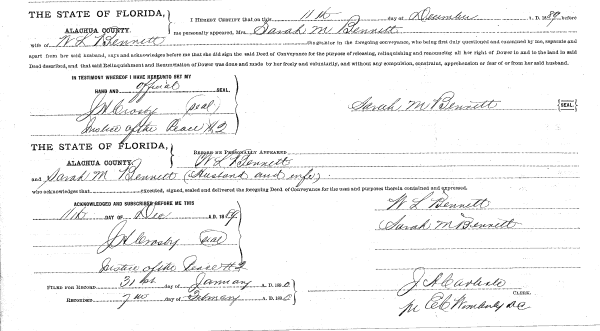 THE STATE OF FLORIDA,
ALACHUA COUNTY.
I HEREBY CERTIFY that on this 11th day of December A. D. 1889, before
me personally appeared, Mrs. Sarah M Bennett
wife of W L Bennett the grantor in the foregoing conveyance, who being first duly questioned and examined by me, separate and
apart from her said husband, says and acknowledges before me that she did sign the said Deed of Conveyance for the purpose of releasing, relinquishing and renouncing all her right of Dower in and to the land in said
Deed described, and that said Relinquishment and Renunciation of Dower was done and made by her freely and voluntarily, and without any compulsion, constraint, apprehension or fear of or from her said husband.
IN TESTIMONY WHEREOF I HAVE HEREUNTO SET MY
HAND AND official SEAL.
J H Crosby seal
Justice of the Peace
Sarah M Bennett SEAL
THE STATE OF FLORIDA,
ALACHUA COUNTY.
BEFORE ME PERSONALLY APPEARED
W L Bennett
and Sarah M Bennett (Husband and wife)
who acknowledges that executed, signed, sealed and delivered the foregoing Deed of Conveyance for the uses and purposes therein contained and expressed.
ACKNOWLEDGED AND SUBSCRIBED BEFORE ME THIS
11th DAY OF Dec A. D. 1889.
J H Crosby seal
Justice of the Peace #2
W L Bennett
Sarah M Bennett
FILED FOR RECORD 31st day of January A. D. 1890
RECORDED day of A. D. 1890
J A Carlisle
CLERK.
pr E C Wimberly D.C.